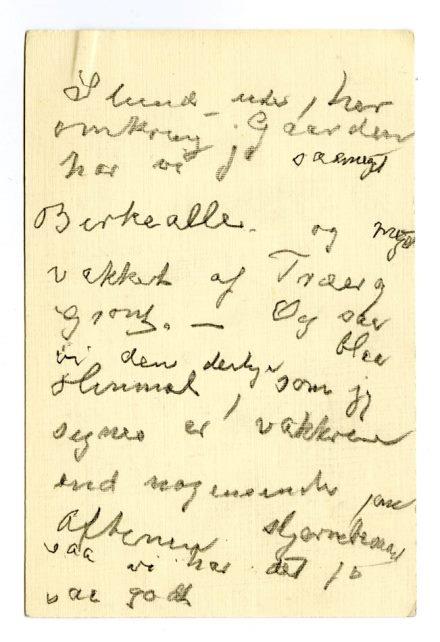 I lund uder, her
omkring Gaarden
har vi jo saameget
Birkealle. og meget
vakkert af Træer og
grønt. — Og saa
vi den deilige blaa
Himmel, som jeg
synes er vakkrere
end nogensinde, om
Aftenen stjerneklar
saa vi har det jo
saa godt